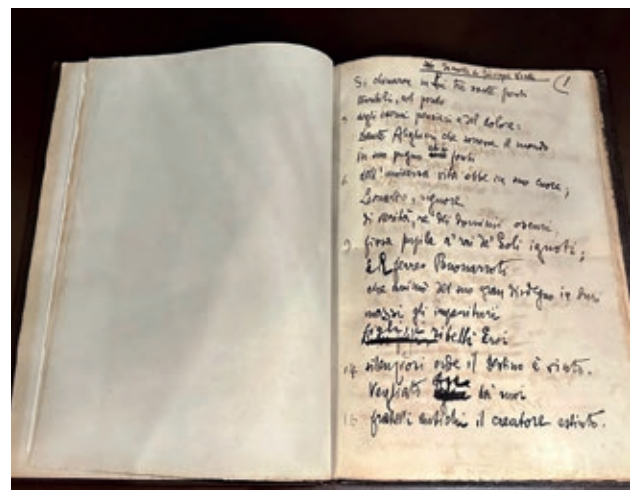 In morte di Giuseppe Verdi (1
Si chinaron su lui tre vaste fronti
terribili, col pondo
3 degli eterni pensieri e del dolore:
Dante Alighieri che sorresse il mondo
in suo pugno ed i fonti
6 dell'universa vita ebbe in suo cuore;
Leonardo, signore
di verità, re dei dominii oscuri,
9 fissa pupila a' rai de' Soli ignoti;
E il ferreo Buonarroti
che animò del suo gran disdegno in duri
massi gli imperituri
figli, i ribelli Eroi
14 silenziosi onde il Destino è vinto.
Vegliato fu da' suoi
16 fratelli antichi il creatore estinto.